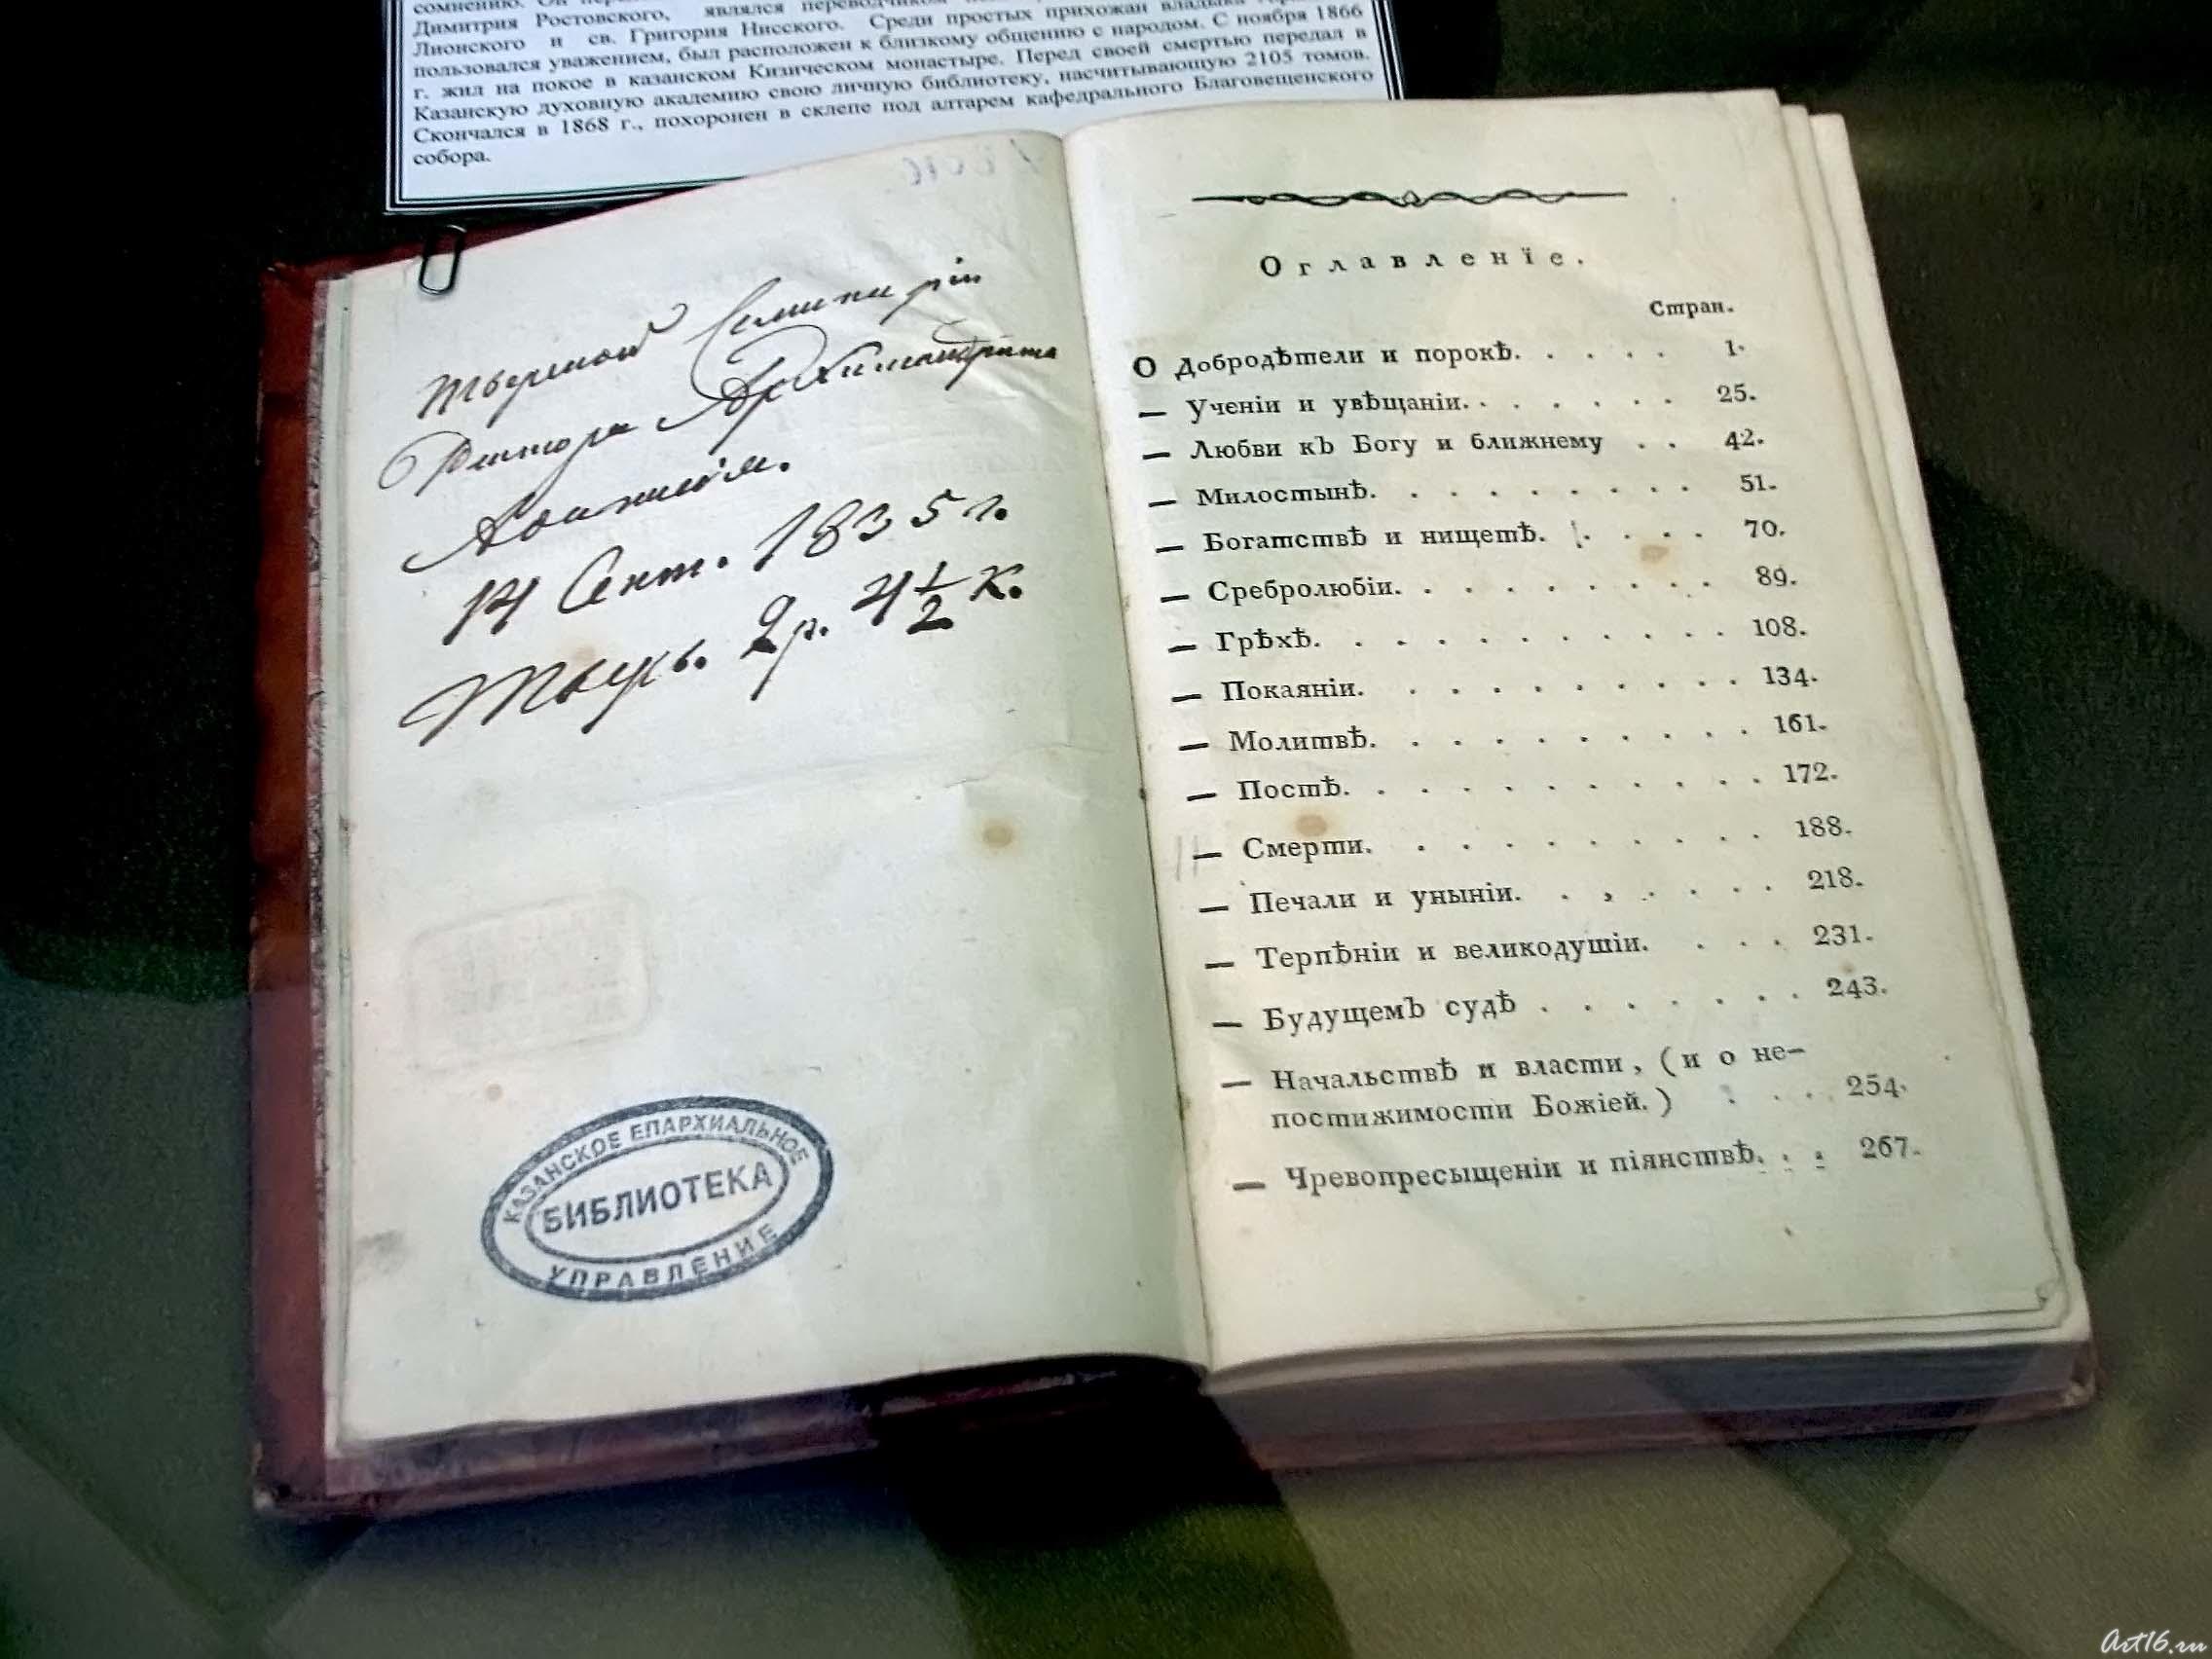 сомнению. Он
Димитрия Ростовского, являлся переводчиком
Лионского и св. Григория Нисского. Среди простых прихожан владыка
пользовался уважением, был расположен к близкому общению с народом. С ноября 1866
г. жил на покое в казанском Кизическом монастыре. Перед своей смертью передал в
Казанскую духовную академию свою личную библиотеку, насчитывающую 2105 томов.
Скончался в 1868 г., похоронен в склепе под алтарем кафедрального Благовещенского
собора.
Тверской Семинаріи
Ректора Архимандрита
Аѳанасія.
14 Сент. 1835 г.
Тверь. 2 р. 4 1/2 к.
КАЗАНСКОЕ ЕПАРХИАЛЬНОЕ
БИБЛИОТЕКА
УПРАВЛЕНИЕ
Оглавленїе.
Стран.
О Добродѣтели и порокѣ. . . . . 1.
— Ученіи и увѣщаніи. . . . . . 25.
— Любви къ Богу и ближнему . . 42.
— Милостынѣ. . . . . . . . 51.
— Богатствѣ и нищетѣ. . . . . 70.
— Сребролюбіи. . . . . . . . 89.
— Грѣхѣ. . . . . . . . . . 108.
— Покаяніи. . . . . . . . . 134.
— Молитвѣ. . . . . . . . . 161.
— Постѣ. . . . . . . . . . 172.
— Смерти. . . . . . . . . 188.
— Печали и уныніи. . . . . . 218.
— Терпѣніи и великодушіи. . . . 231.
— Будущемъ судѣ . . . . . . . 243.
— Начальствѣ и власти, (и о не-
постижимости Божіей.) . . . 254.
— Чревопресыщеніи и піянствѣ. . . 267.
Art16.ru